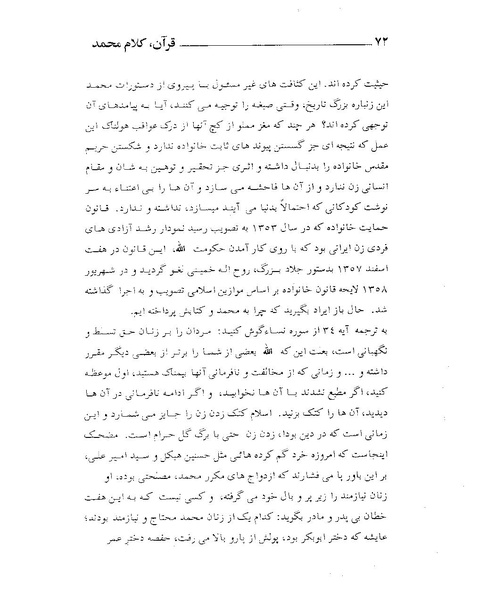 ۷۲ قرآن، کلام محمد
حیثیت کرده اند. این کثافت های غیر مسئول با پیروی از دستورات محمد
این زنباره بزرگ تاریخ، وقتی صیغه را توجیه می کنند، آیا به پیامدهای آن
توجهی کرده اند؟ هر چند که مغز مملو از کچ آنها از درک عواقب هولناک این
عمل که نتیجه ای جز گسستن پیوند های ثابت خانواده ندارد و شکستن حریم
مقدس خانواده را بدنبال داشته و اثری جز تحقیر و توهین به شان و مقام
انسانی زن ندارد و از آن ها فاحشه می سازد و آن ها را بی اعتناء به سر
نوشت کودکانی که احتمالاً بدنیا می آیند میسازد، نداشته و ندارد. قانون
حمایت خانواده که در سال ۱۳۵۳ به تصویب رسید نمودار رشد آزادی های
فردی زن ایرانی بود که با روی کار آمدن حکومت الله، این قانون در هفت
اسفند ۱۳۵۷ بدستور جلاد بزرگ، روح اله خمینی لغو گردید و در شهریور
۱۳۵۸ لایحه قانون خانواده بر اساس موازین اسلامی تصویب و به اجرا گذاشته
شد. حال باز ایراد بگیرید که چرا به محمد و کتابش پرداخته ایم.
به ترجمه آیه ۳۴ از سوره نساءگوش کنید: مردان را بر زنان حق تسلط و
نگهبانی است، بعلت این که الله بعضی از شما را برتر از بعضی دیگر مقرر
داشته و ... و زمانی که از مخالفت و نافرمانی آنها بیمناک هستید، اول موعظه
کنید، اگر مطیع نشدند با آن ها نخوابید، و اگر ادامه نافرمانی در آن ها
دیدید، آن ها را کتک بزنید. اسلام کتک زدن زن را جایز می شمارد و این
زمانی است که در دین بودا، زدن زن حتی با برگ گل حرام است. مضحک
اینجاست که امروزه خرد گم کرده هائی مثل حسنین هیکل و سید امیر علی،
بر این باور پا می فشارند که ازدواج های مکرر محمد، مصلحتی بوده، او
زنان نیازمند را زیر پر و بال خود می گرفته، و کسی نیست که به این هفت
خطان بی پدر و مادر بگوید: کدام یک از زنان محمد محتاج و نیازمند بودند؛
عایشه که دختر ابوبکر بود، پولش از پارو بالا می رفت، حفصه دختر عمر